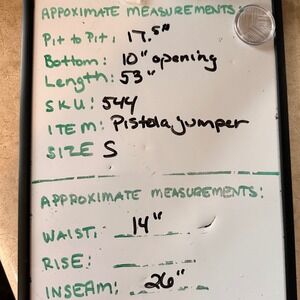 APPOXIMATE MEASUREMENTS:
Pit to Pit: 17.5"
Bottom: 10" opening
Length: 53"
SKU: 544
ITEM: Pistola jumper
SIZE S
APPROXIMATE MEASUREMENTS:
WAIST: 14"
RISE:
INSEAM: 26"